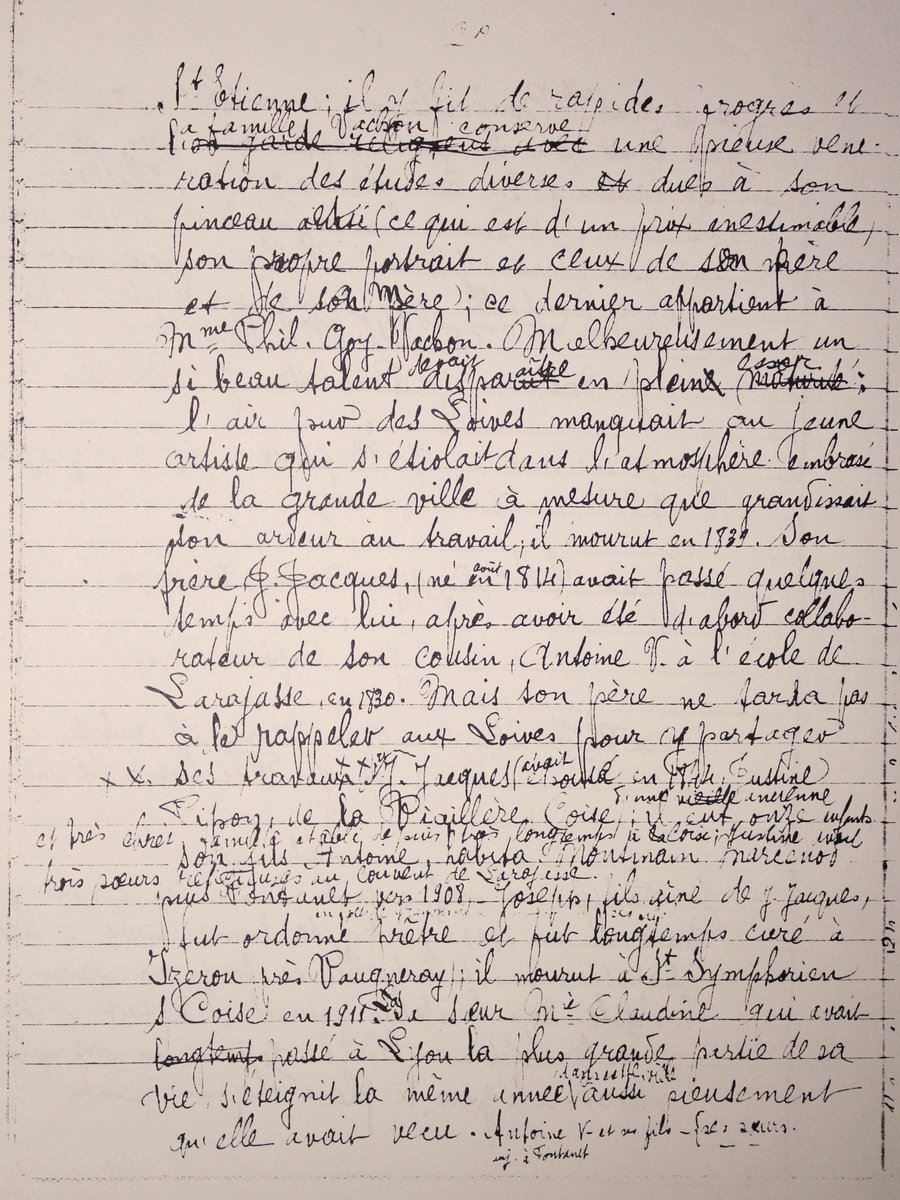 St Etienne ; il y fit de rapides progrès et
la famille Vachon conserve
est garde religieus avec une pieuse véné-
ration des études diverses et dues à son
pinceau ainsi (ce qui est d'un prix inestimable,
son propre portrait et ceux de son père
et de sa Mère) ; ce dernier appartient à
Mme Phil. Goy-Vachon. Malheureusement un
si beau talent devait disparaître en plein essor maturité ;
l'air pur des Loives manquait au jeune
artiste qui s'étiolait dans l'atmosphère embrasé
de la grande ville à mesure que grandissait
son ardeur au travail, il mourut en 1839. Son
frère J. Jacques, (né en août 1814) avait passé quelques
temps avec lui, après avoir été d'abord collabo-
rateur de son cousin, Antoine V. à l'école de
Larajasse, en 1830. Mais son père ne tarda pas
à le rappeler aux Loives pour y partager
xx. ses travaux xx J. Jacques (avait épousé en 1844, Justine)
d'une vieille ancienne
Pipon, de la Coise, il eut onze enfants
et très chrét. famille établie depuis très longtemps à Lacoise ; Justine avait
son fils Antoine, habita Montmain Marcenod
trois sœurs religieuses au couvent de Larajasse.
puis Fontanet vers 1908, - Joseph, fils aîné de J. Jacques,
fut ordonné prêtre et fut longtemps curé à
Yzeron près Vaugneray ; il mourut à St Symphorien
s Coise en 1911. Sa sœur Mie Claudine qui avait
longtemps passé à Lyon la plus grande partie de sa
vie s'éteignit la même année dans cette ville aussi pieusement
qu'elle avait vécu. Antoine V. et ses fils - ses sœurs.
auj. à Fontanet